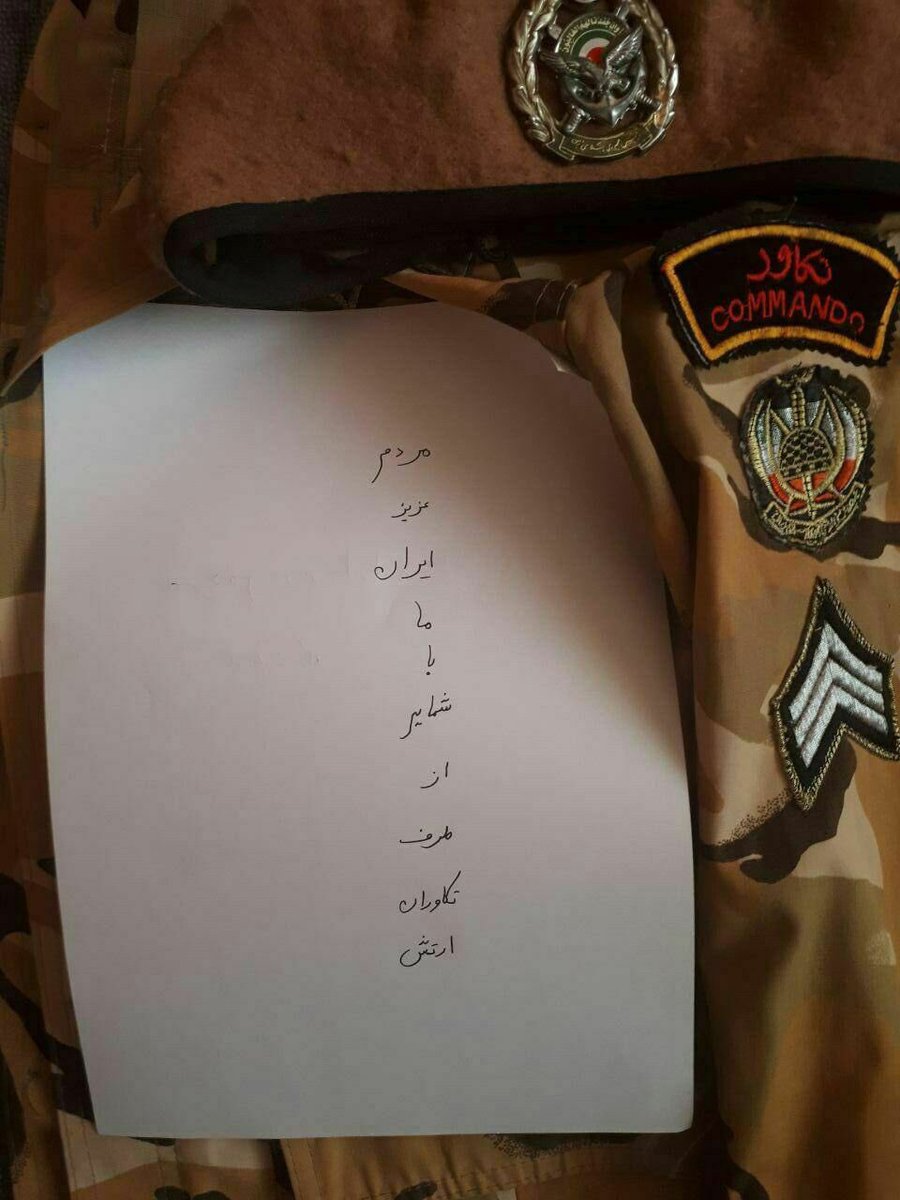 تکاور
COMMANDO
مردم
عزیز
ایران
ما
با
شمایم
از
طرف
تکاوران
ارتش